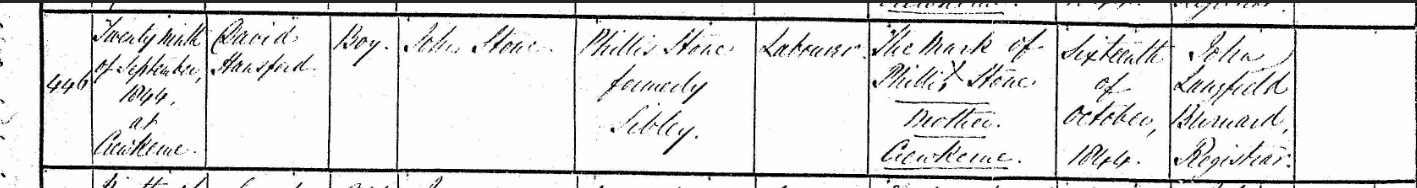 446
Twenty ninth
of September,
1844,
at
Crewkerne.
David
Hansford
Boy.
John Stone
Phillis Stone
formerly
Sibley.
Labourer.
The Mark of
Phillis X Stone
Mother.
Crewkerne.
Sixteenth
of
October,
1844.
John
Langfield
Burnard,
Registrar.